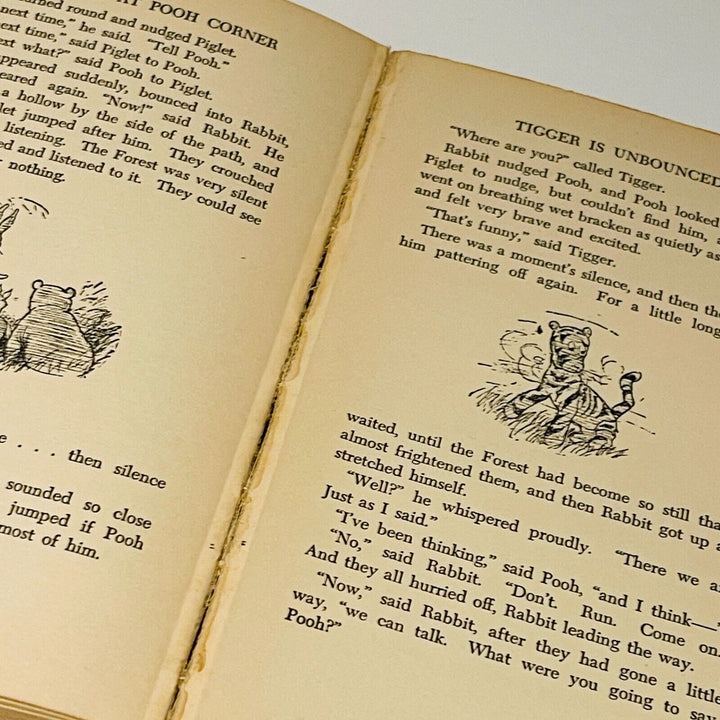 AT POOH CORNER
turned round and nudged Piglet.
next time," he said. "Tell Pooh."
next time," said Piglet to Pooh.
next what?" said Pooh to Piglet.
appeared suddenly, bounced into Rabbit,
again. "Now!" said Rabbit. He
a hollow by the side of the path, and
jumped after him. They crouched
listening. The Forest was very silent
and listened to it. They could see
nothing.
. . . then silence
sounded so close
jumped if Pooh
most of him.
TIGGER IS UNBOUNCED
"Where are you?" called Tigger.
Rabbit nudged Pooh, and Pooh looked
Piglet to nudge, but couldn't find him, a
went on breathing wet bracken as quietly as
and felt very brave and excited.
"That's funny," said Tigger.
There was a moment's silence, and then the
him pattering off again. For a little long
waited, until the Forest had become so still tha
almost frightened them, and then Rabbit got up a
stretched himself.
"Well?" he whispered proudly. "There we a
Just as I said."
"I've been thinking," said Pooh, "and I think—"
"No," said Rabbit. "Don't. Run. Come on.
And they all hurried off, Rabbit leading the way.
"Now," said Rabbit, after they had gone a little
way, "we can talk. What were you going to say
Pooh?"